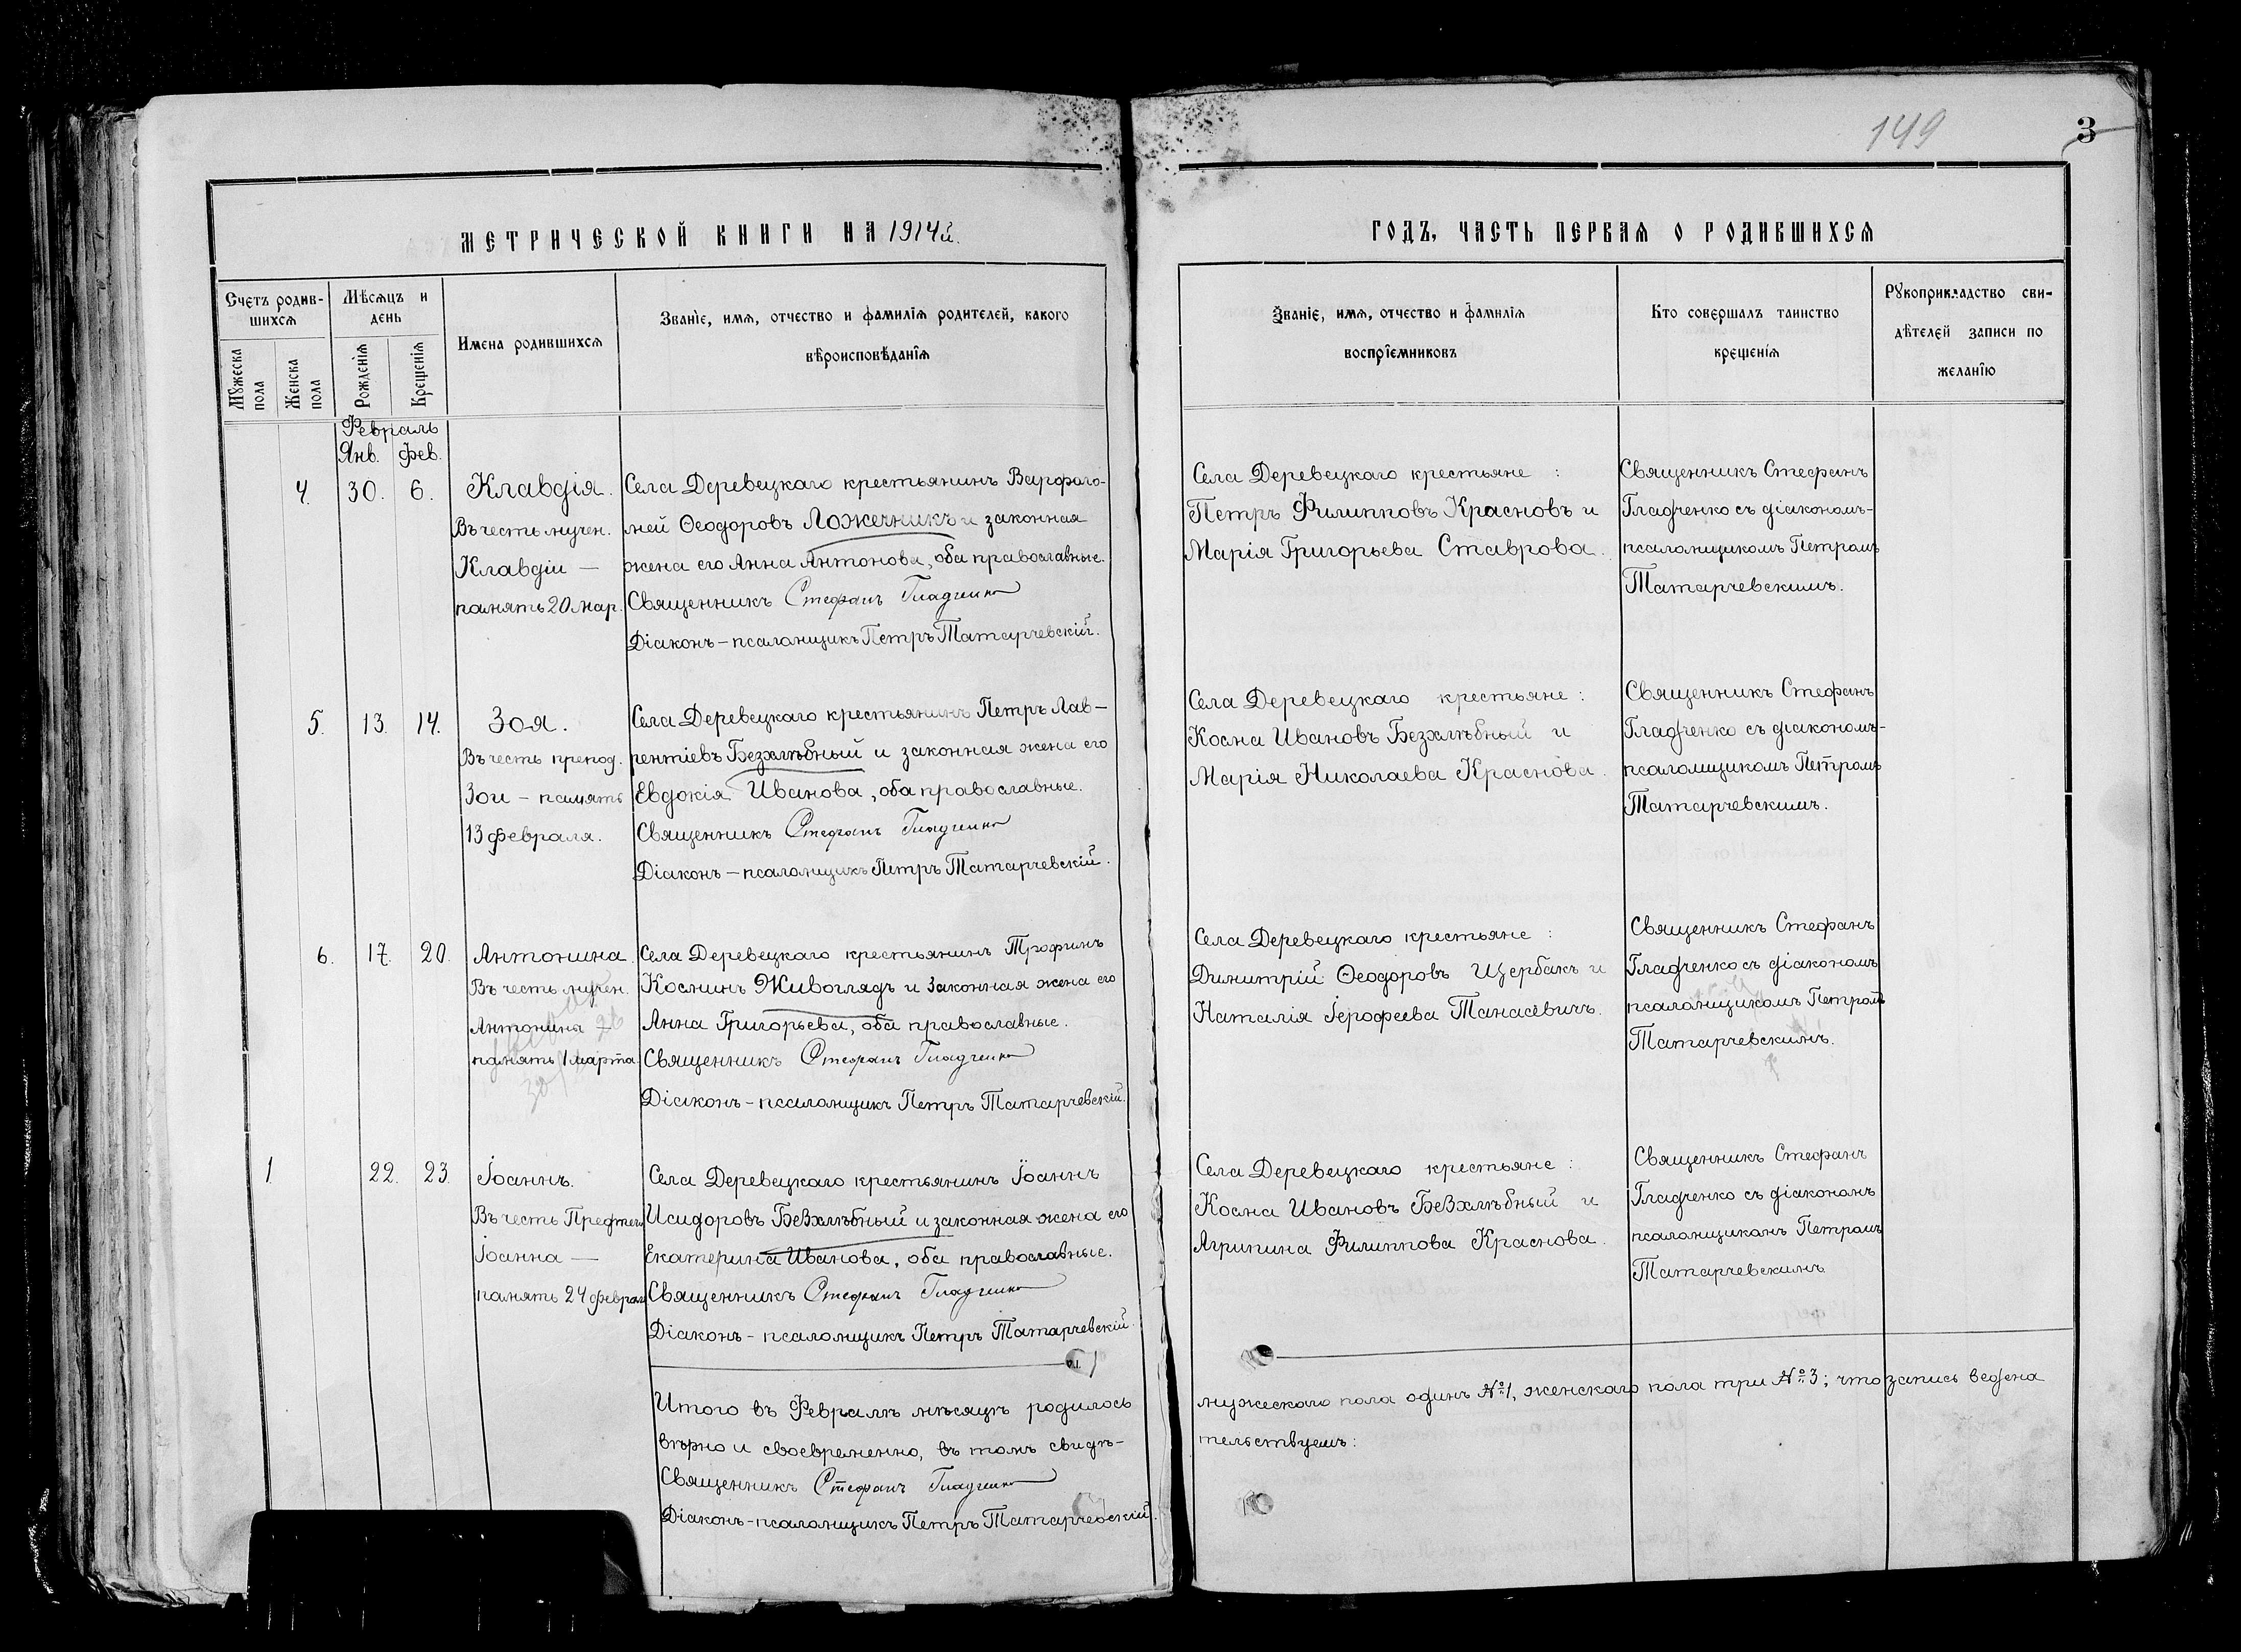 149
3
МЕТРИЧЕСКОЙ КНИГИ НА 1914й.
ГОДЪ, ЧАСТЬ ПЕРВАЯ О РОДИВШИХСЯ
Счетъ родив-
шихся
Мужеска пола
Женска пола
Мѣсяцъ и
день
Рожденія
Крещенія
Имена родившихся
Званіе, имя, отчество и фамилія родителей, какого
вѣроисповѣданія
Званіе, имя, отчество и фамилія
воспріемниковъ
Кто совершалъ таинство
крещенія
Рукоприкладство сви-
дѣтелей записи по
желанію
Февраль
Янв. Фев.
4. 30. 6.
Клавдія.
Въ честь мучен.
Клавдіи —
память 20 мар.
Села Деревецкаго крестьянинъ Варфоло-
мей Ѳеодоровъ Ложечникъ и законная
жена его Анна Антонова, оба православные.
Священникъ Стефанъ Гладченко
Діаконъ-псаломщикъ Петръ Татарчевскій.
Села Деревецкаго крестьяне:
Петръ Филипповъ Красновъ и
Марія Григорьева Ставрова.
Священникъ Стефанъ
Гладченко съ діакономъ-
псаломщикомъ Петромъ
Татарчевскимъ.
5. 13. 14.
Зоя.
Въ честь препод.
Зои – память
13 февраля.
Села Деревецкаго крестьянинъ Петръ Лав-
рентіевъ Безхлѣбный и законная жена его
Евдокія Иванова, оба православные.
Священникъ Стефанъ Гладченко
Діаконъ – псаломщикъ Петръ Татарчевскій.
Села Деревецкаго крестьяне:
Косма Ивановъ Безхлѣбный и
Марія Николаева Краснова.
Священникъ Стефанъ
Гладченко съ діакономъ-
псаломщикомъ Петромъ
Татарчевскимъ.
6. 17. 20.
Антонина.
Въ честь мучен.
Антонины —
память 1 марта
Села Деревецкаго крестьянинъ Трофимъ
Косминъ Живоглядъ и законная жена его
Анна Григорьева, оба православные.
Священникъ Стефанъ Гладченко
Діаконъ – псаломщикъ Петръ Татарчевскій.
Села Деревецкаго крестьяне:
Димитрій Ѳеодоровъ Щербакъ и
Наталія Іерофеева Танасевичъ.
Священникъ Стефанъ
Гладченко съ діакономъ
псаломщикомъ Петромъ
Татарчевскимъ.
1 22. 23.
Іоаннъ.
Въ честь Предтечи
Іоанна —
память 24 феврал
Села Деревецкаго крестьянинъ Іоаннъ
Исидоровъ Безхлѣбный и законная жена его
Екатерина Иванова, оба православные.
Священникъ Стефанъ Гладченко
Діаконъ – псаломщикъ Петръ Татарчевскій.
Села Деревецкаго крестьяне:
Косма Ивановъ Безхлѣбный и
Агрипина Филиппова Краснова.
Священникъ Стефанъ
Гладченко съ діакономъ
псаломщикомъ Петромъ
Татарчевскимъ
Итого въ Февралѣ мѣсяцѣ родилось мужескаго пола одинъ № 1, женскаго пола три № 3; что запись ведена
вѣрно и своевременно, въ томъ свидѣ- тельствуемъ:
Священникъ Стефанъ Гладченко
Діаконъ-псаломщикъ Петръ Татарчевскій.